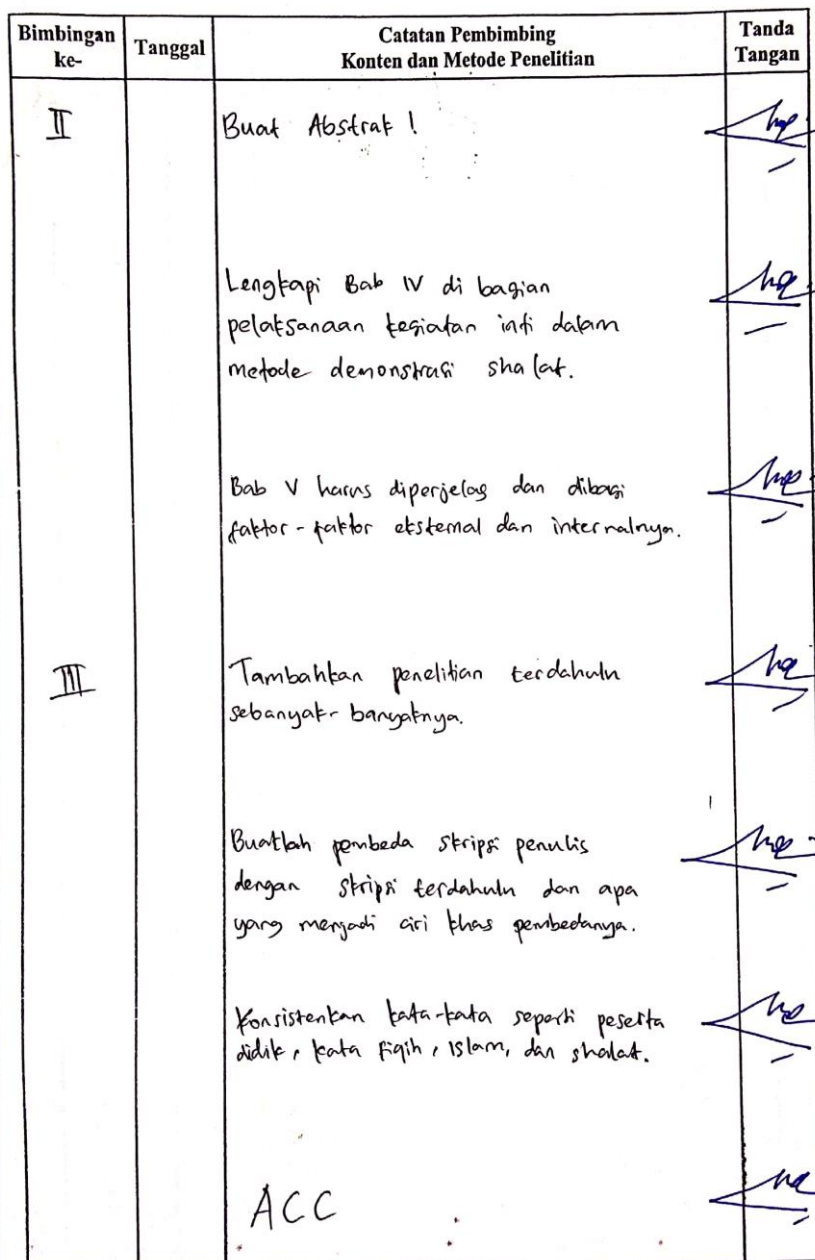 Bimbingan ke-
Tanggal
Catatan Pembimbing
Konten dan Metode Penelitian
Tanda Tangan
II
Buat Abstrak !
Lengkapi Bab IV di bagian
pelaksanaan kegiatan inti dalam
metode demonstrasi shalat.
Bab V harus diperjelas dan dibagi
faktor-faktor eksternal dan internalnya.
III
Tambahkan penelitian terdahulu
sebanyak-banyaknya.
Buatlah pembeda skripsi penulis
dengan skripsi terdahulu dan apa
yang menjadi ciri khas pembedanya.
Konsistenkan kata-kata seperti peserta
didik, kata fiqih, Islam, dan shalat.
ACC